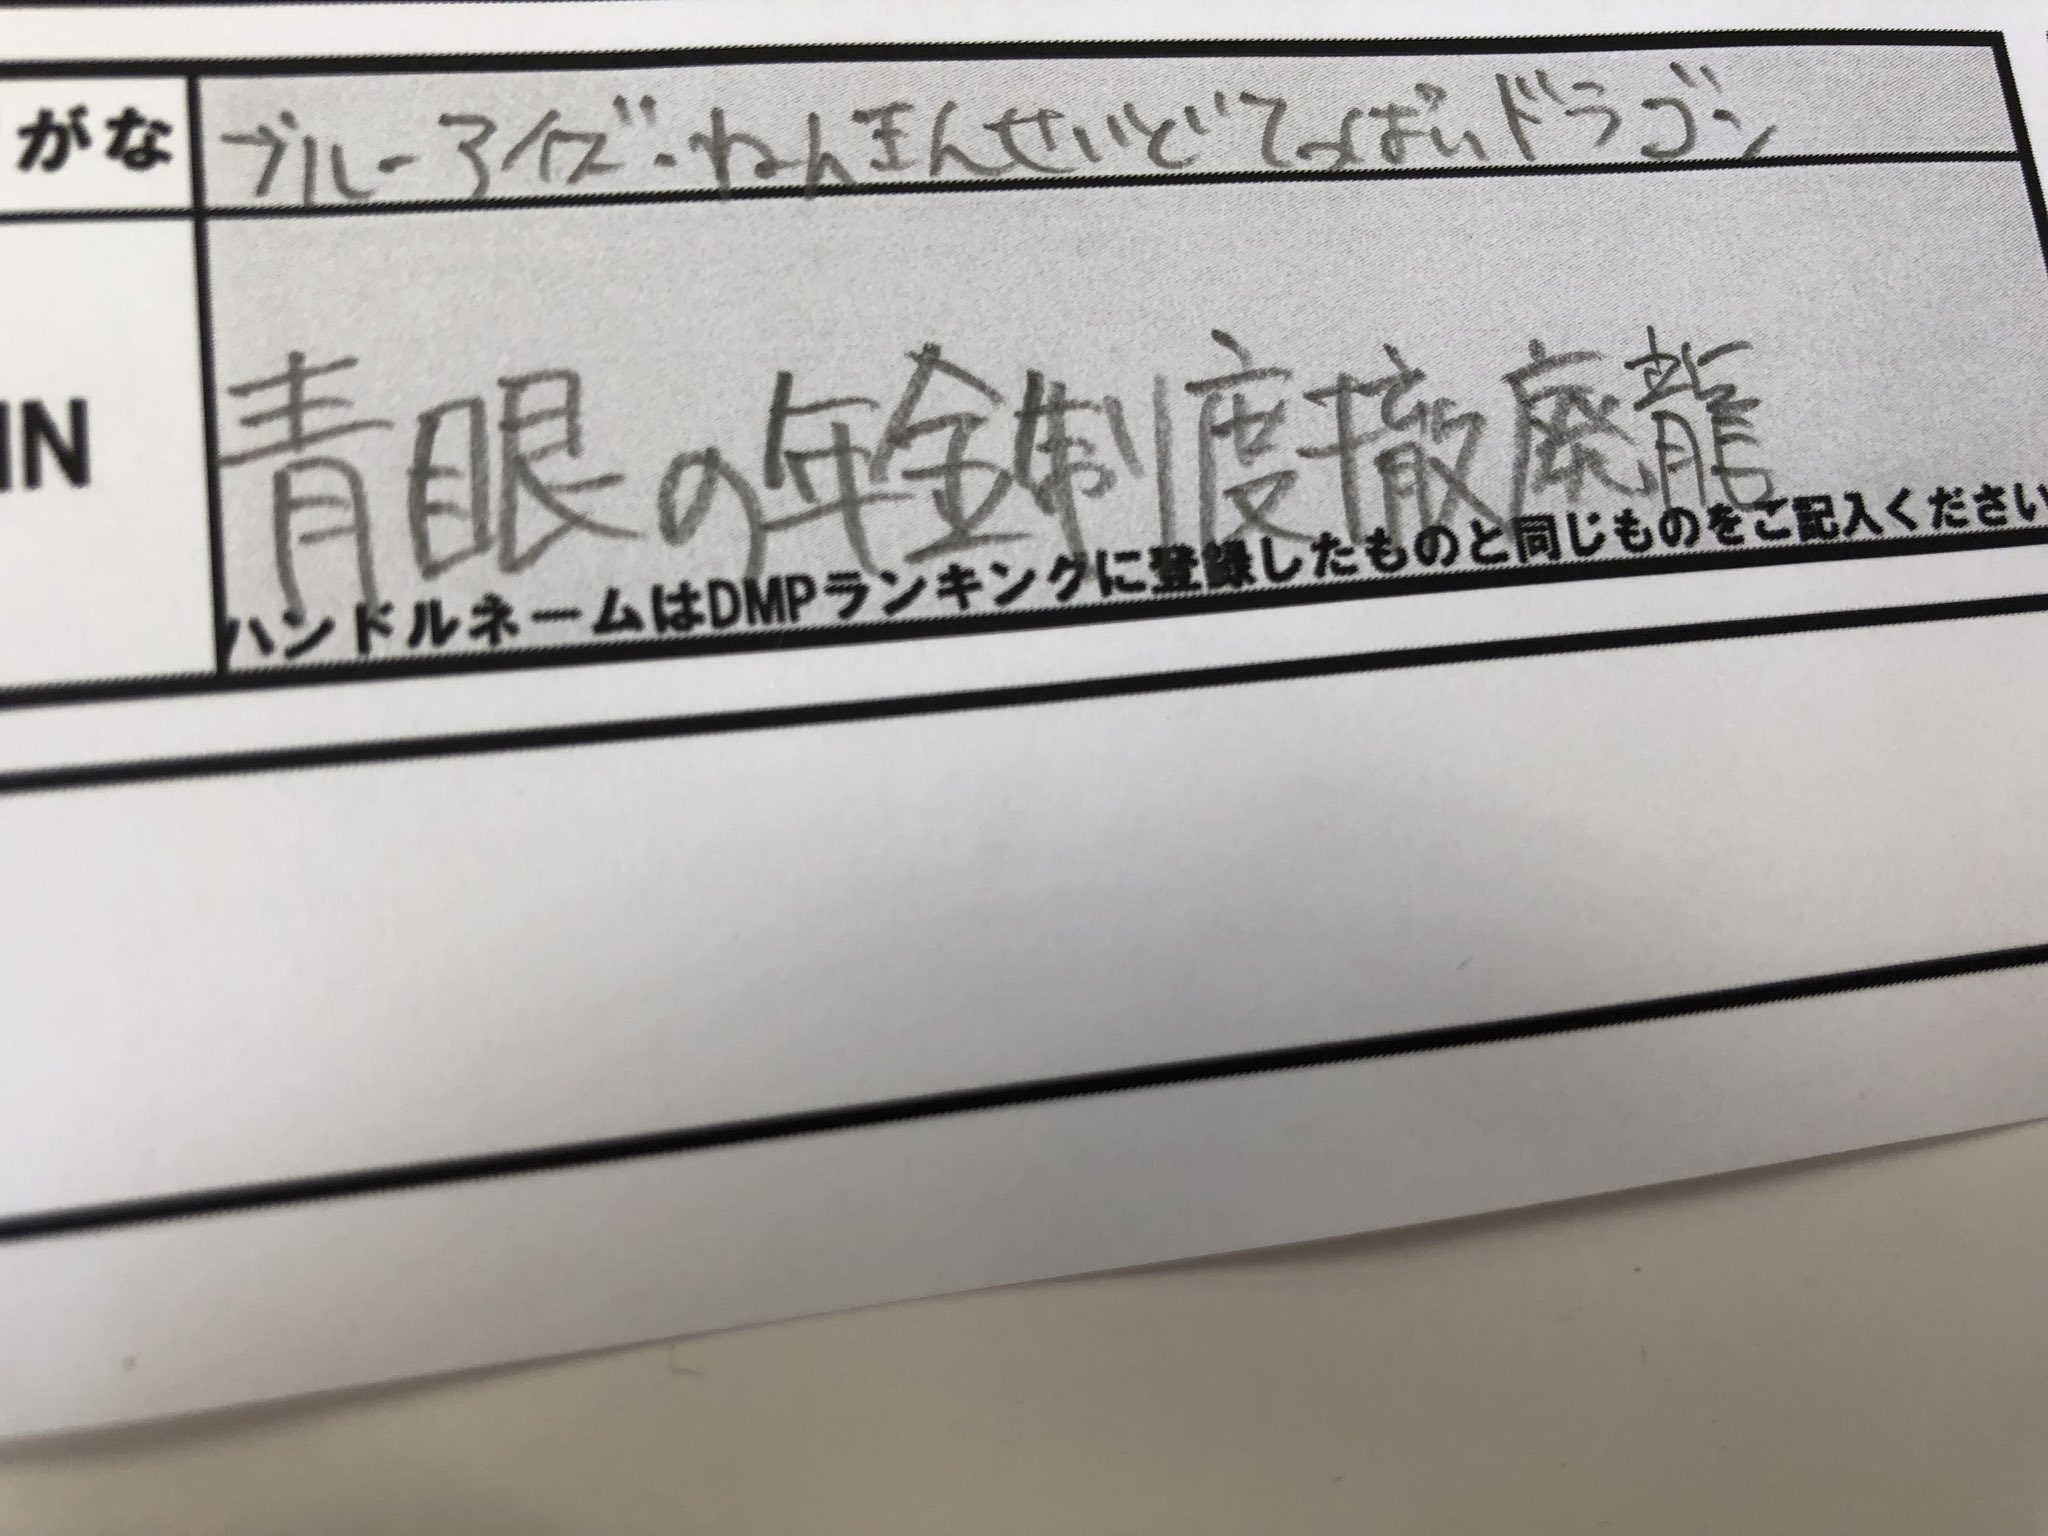 がな ブルーアイズ・ねんきんせいどてっぱいドラゴン
IN 青眼の年金制度撤廃龍
ハンドルネームはDMPランキングに登録したものと同じものをご記入ください